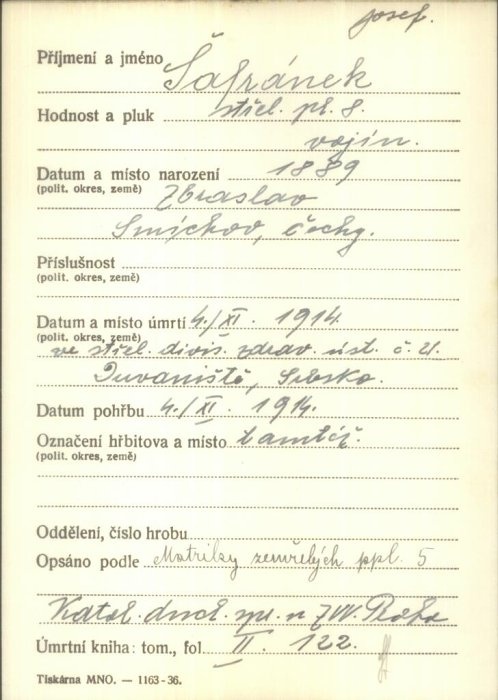 Josef.
Příjmení a jméno Šafránek
Hodnost a pluk střel. pl. 8.
vojín.
Datum a místo narození 1889
(polit. okres, země) Zbraslav
Smíchov, Čechy.
Příslušnost
(polit. okres, země)
Datum a místo úmrtí 4./XI. 1914.
(polit. okres, země)
ve střel. divis. zdrav. úst. č. 21.
Duvaniště, Srbsko.
Datum pohřbu 4./XI. 1914.
Označení hřbitova a místo tamtéž.
(polit. okres, země)
Oddělení, číslo hrobu
Opsáno podle Matriky zemřelých ppl. 5
Katol. duch. spr. n ZVV. Praha
Úmrtní kniha: tom., fol II. 122.
Tiskárna MNO. — 1163-36.